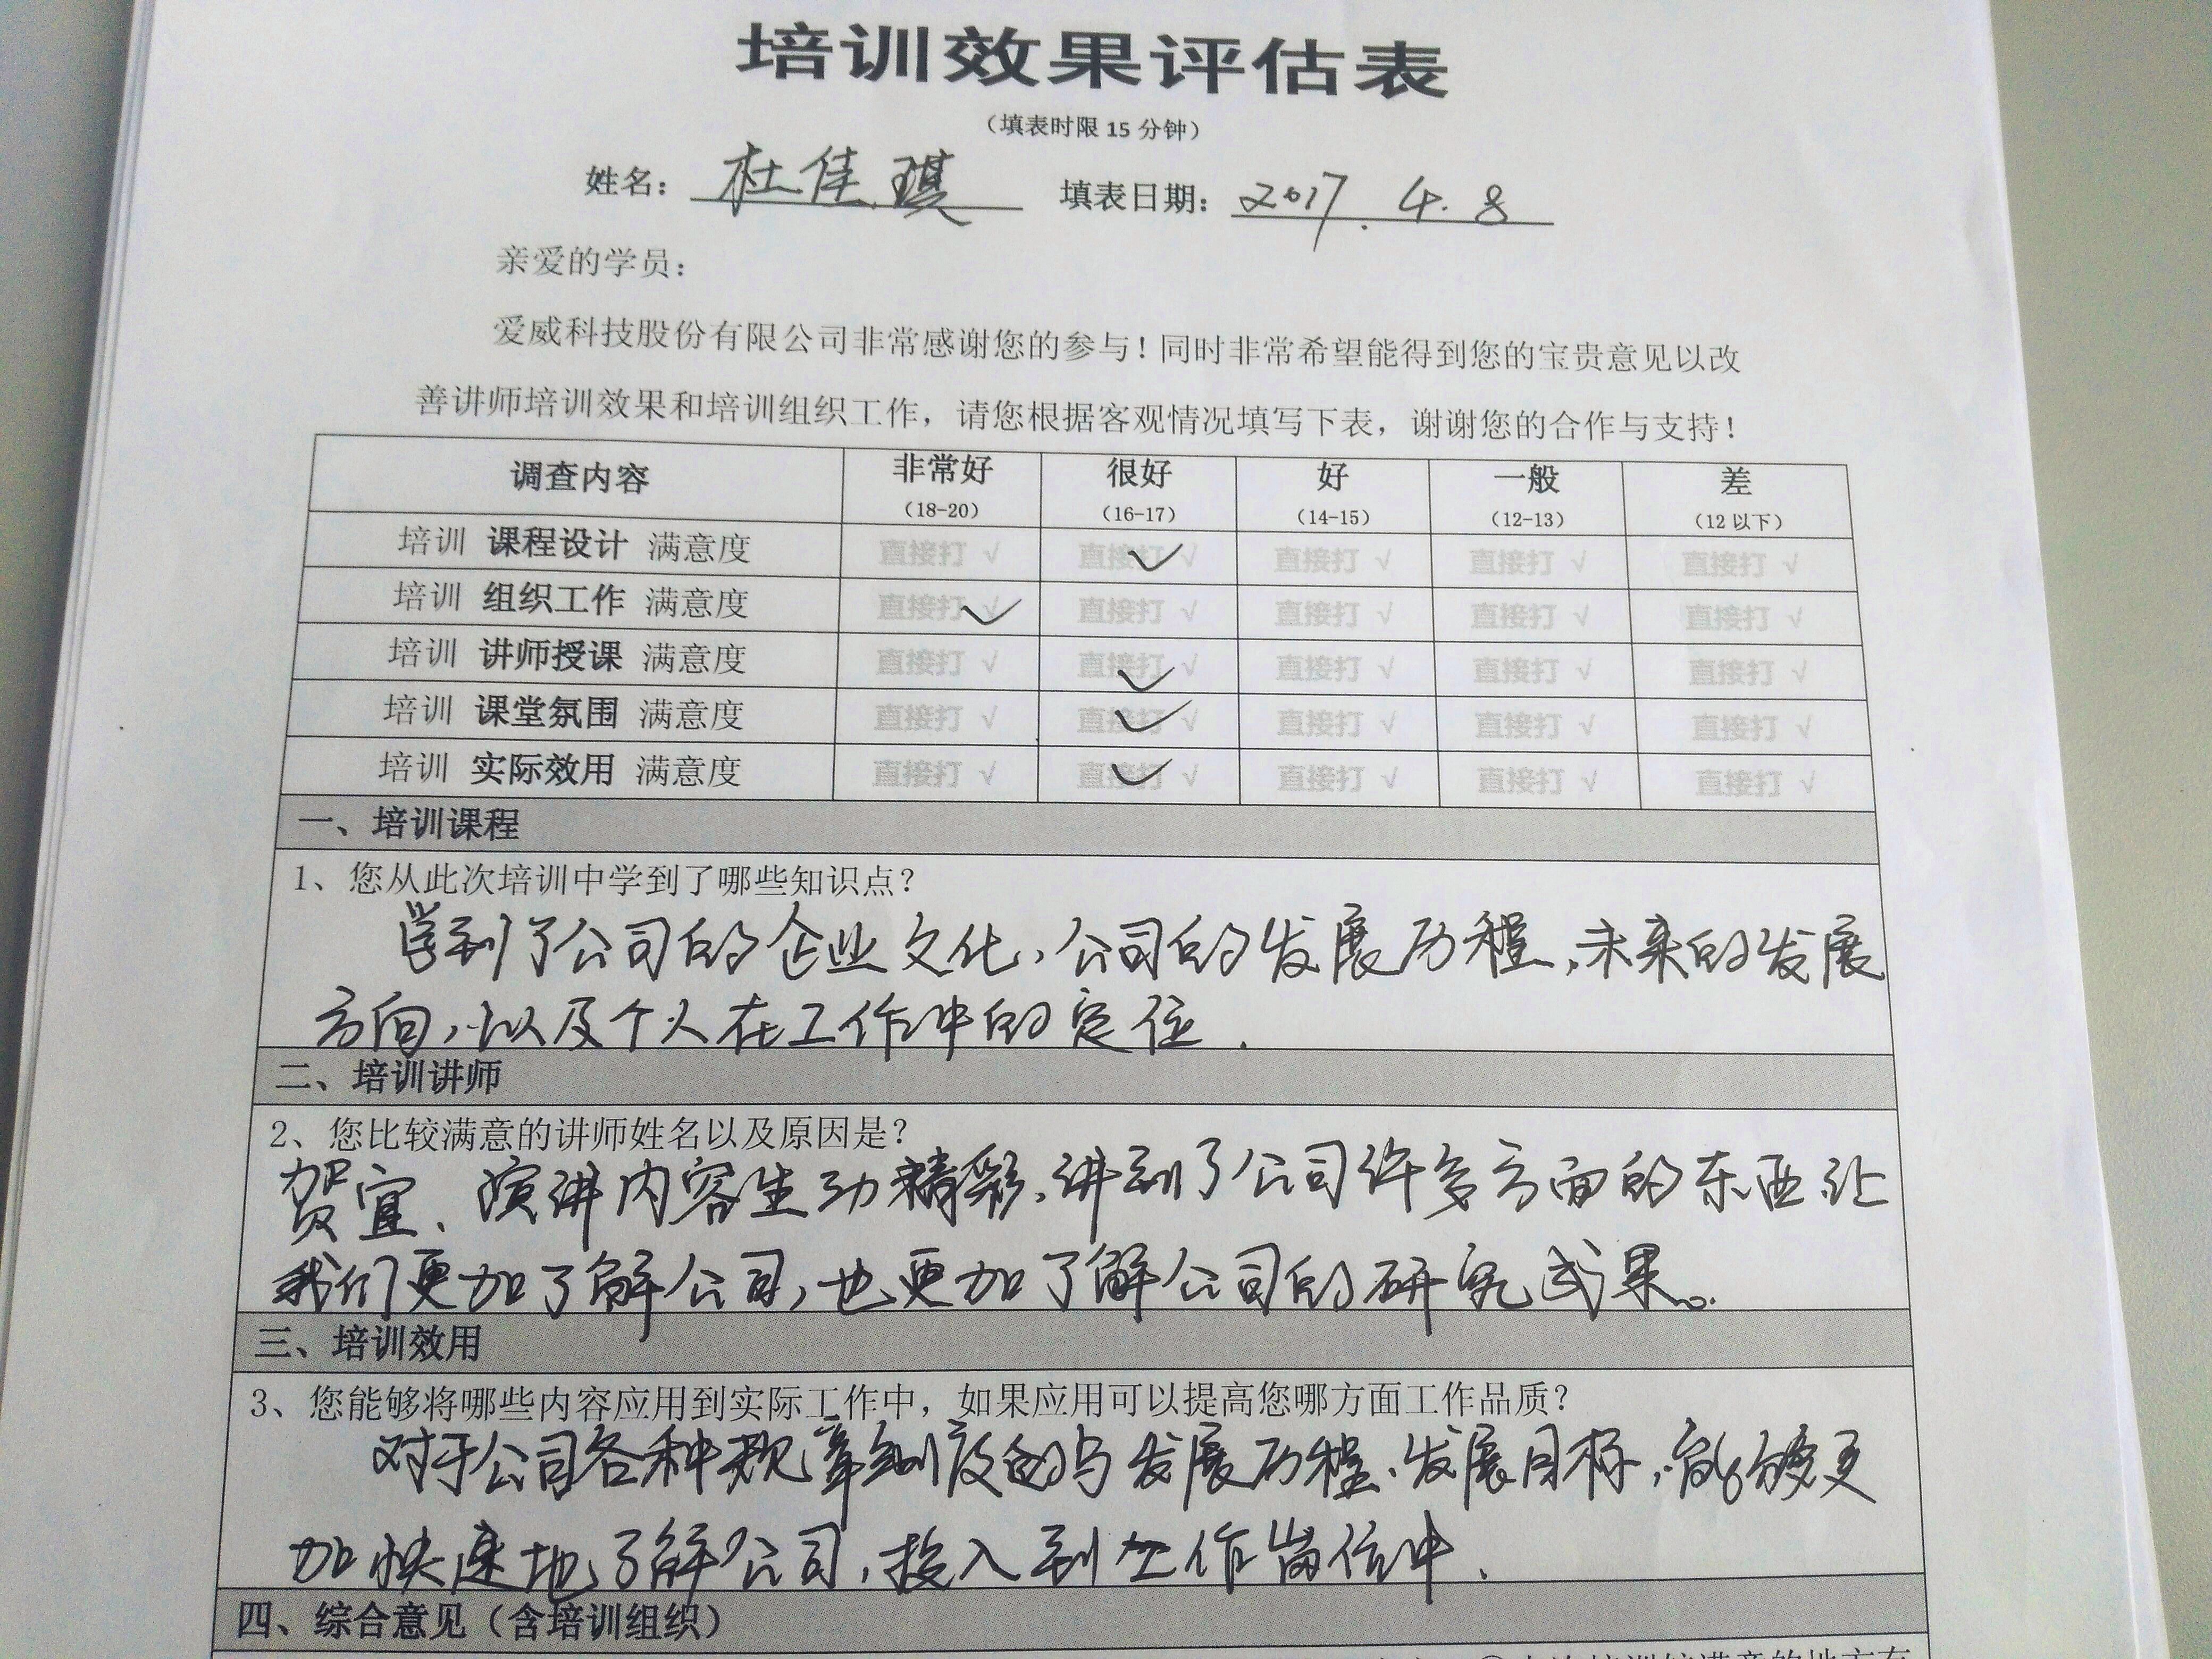 培训效果评估表
（填表时限 15 分钟）
姓名： 杜佳琪 填表日期： 2017. 4. 8
亲爱的学员：
爱威科技股份有限公司非常感谢您的参与！同时非常希望能得到您的宝贵意见以改
善讲师培训效果和培训组织工作，请您根据客观情况填写下表，谢谢您的合作与支持！
调查内容 非常好 很好 好 一般 差
（18-20） （16-17） （14-15） （12-13） （12 以下）
培训 课程设计 满意度 直接打 √ 直接打 √ 直接打 √ 直接打 √ 直接打 √
培训 组织工作 满意度 直接打 √ 直接打 √ 直接打 √ 直接打 √ 直接打 √
培训 讲师授课 满意度 直接打 √ 直接打 √ 直接打 √ 直接打 √ 直接打 √
培训 课堂氛围 满意度 直接打 √ 直接打 √ 直接打 √ 直接打 √ 直接打 √
培训 实际效用 满意度 直接打 √ 直接打 √ 直接打 √ 直接打 √ 直接打 √
一、培训课程
1、您从此次培训中学到了哪些知识点？
学到了公司的企业文化，公司的发展历程，未来的发展
方向，以及个人在工作中的定位．
二、培训讲师
2、您比较满意的讲师姓名以及原因是？
贺宜、演讲内容生动精彩，讲到了公司许多方面的东西让
我们更加了解公司，也更加了解公司的研究成果。
三、培训效用
3、您能够将哪些内容应用到实际工作中，如果应用可以提高您哪方面工作品质？
对于公司各种规章制度的与发展历程、发展目标，能够更
加快速地了解公司，投入到工作岗位中．
四、综合意见（含培训组织）